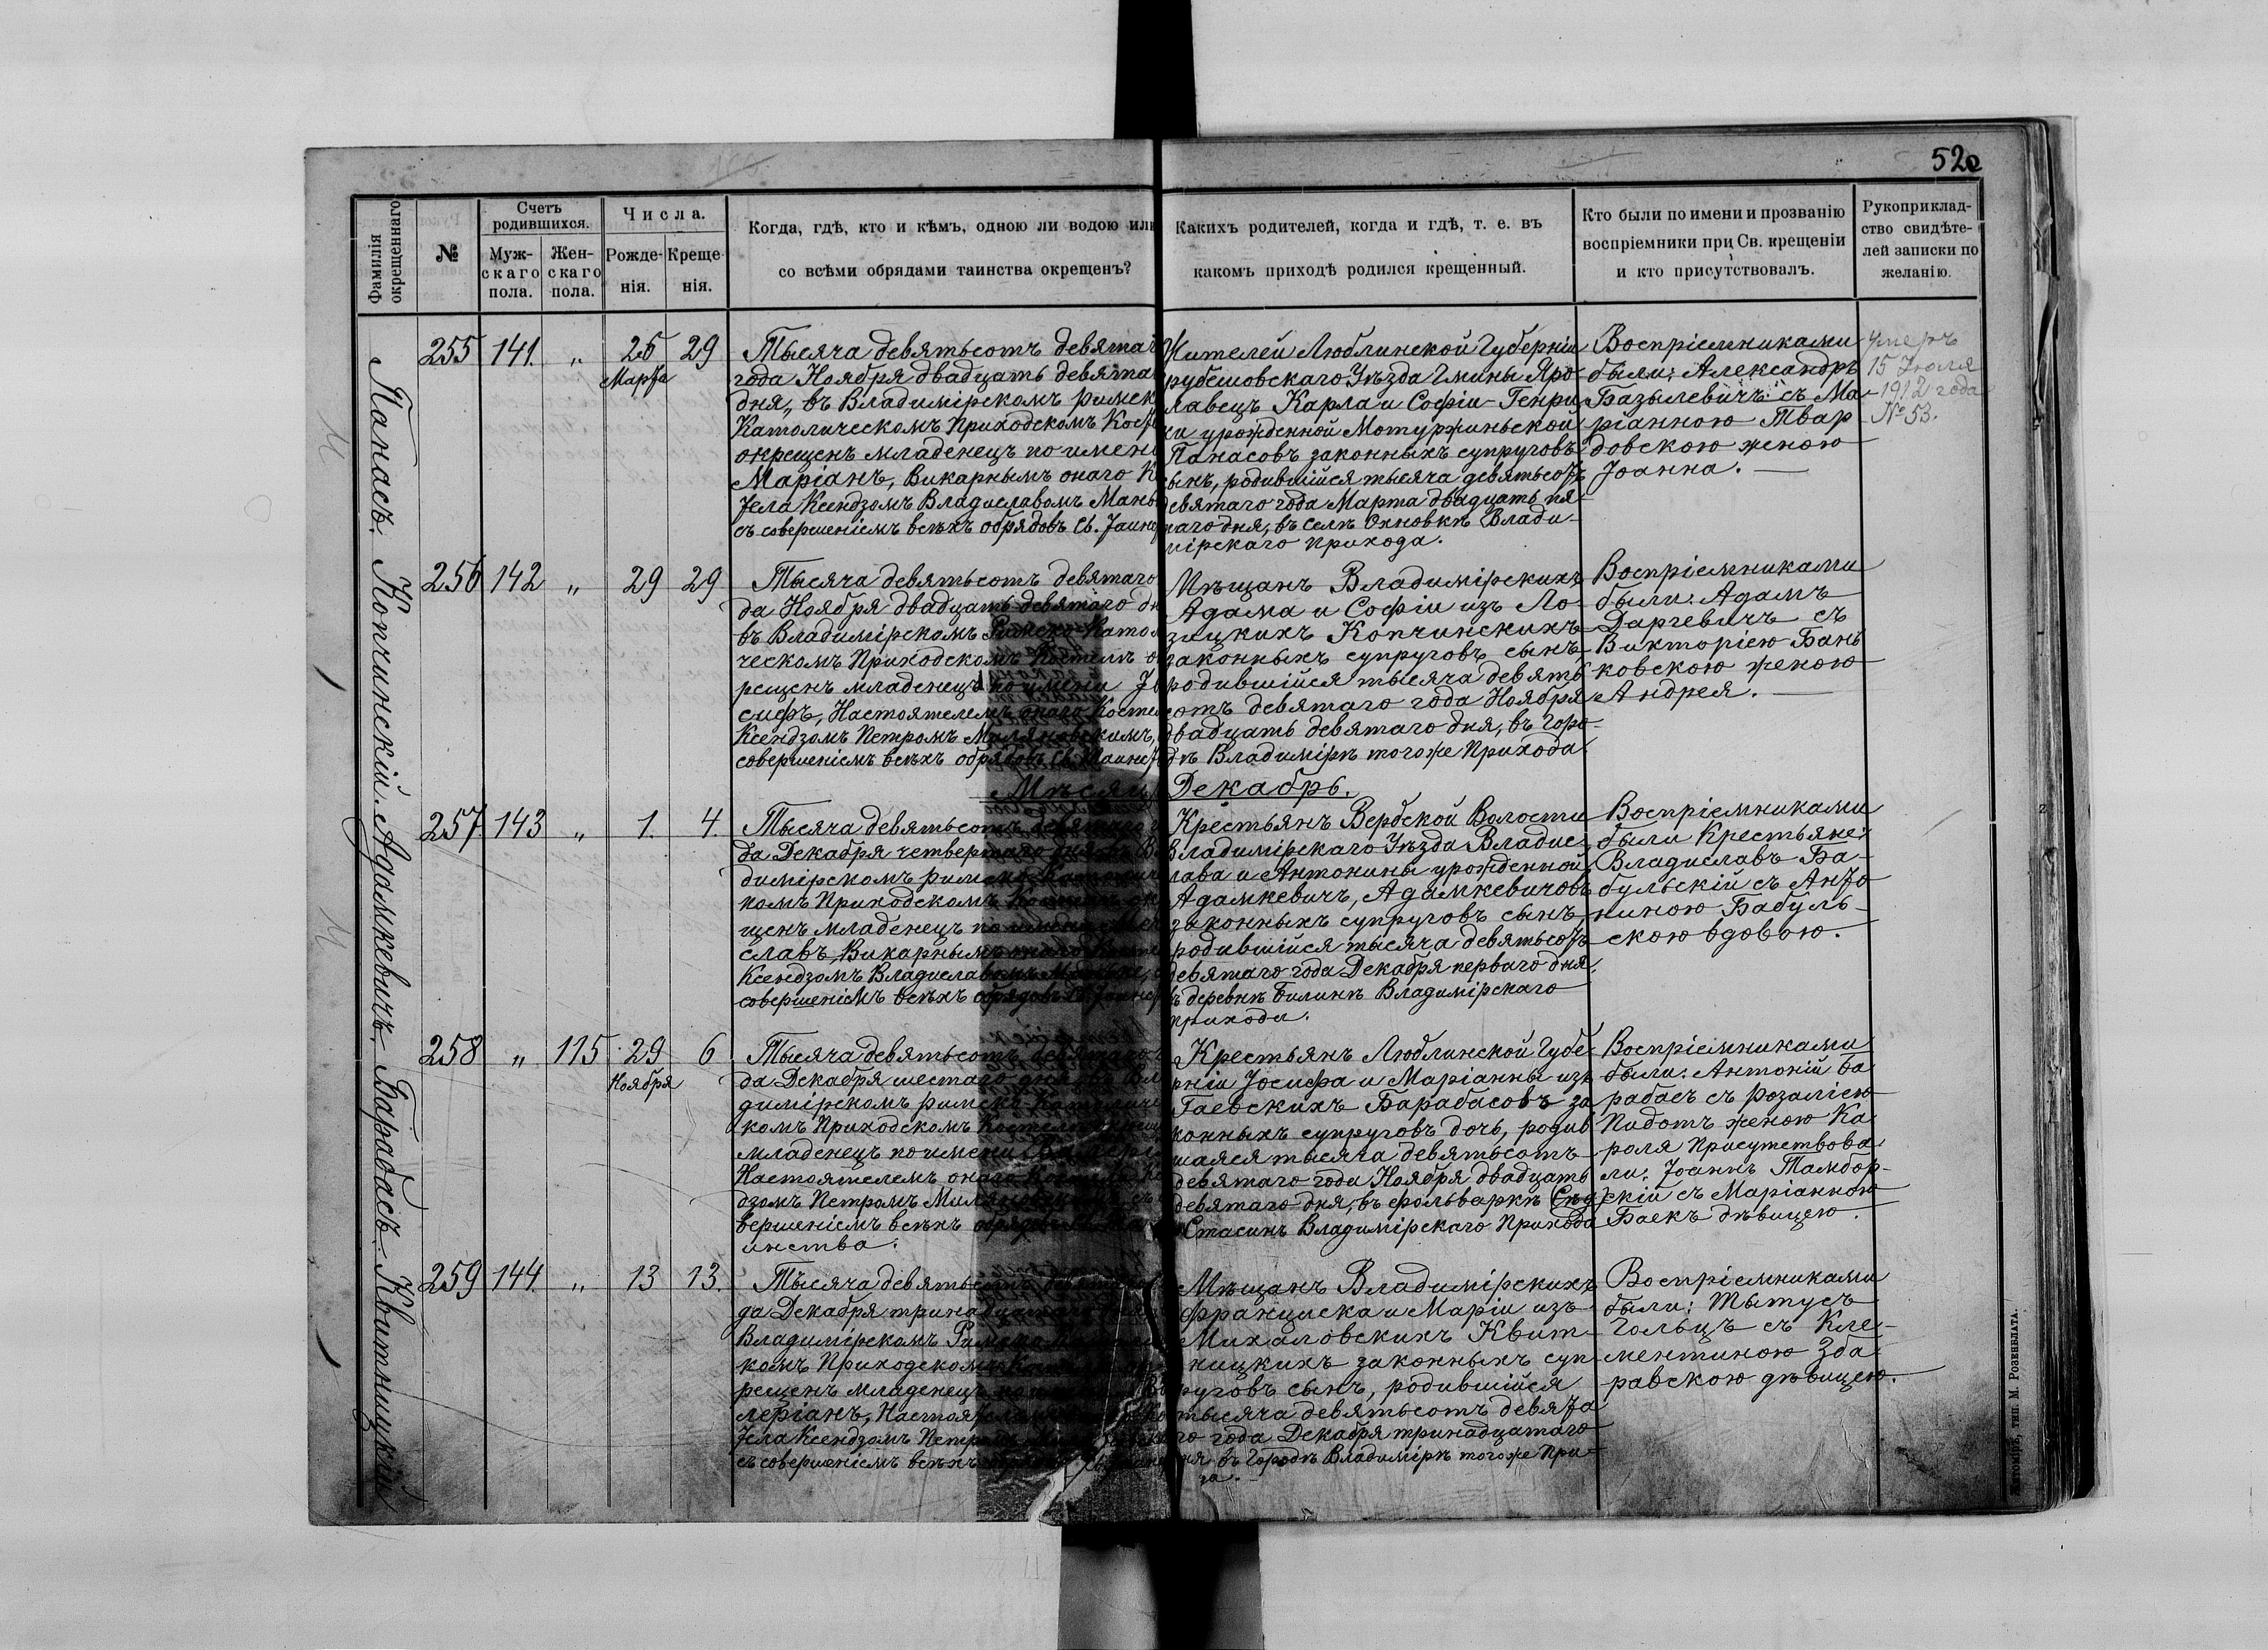 52
Фамилія окрещеннаго
№
Счетъ родившихся.
Муж-
скаго
пола.
Жен-
скаго
пола.
Числа.
Рожде-
нія.
Креще-
нія.
Когда, гдѣ, кто и кѣмъ, одною ли водою или
со всѣми обрядами таинства окрещенъ?
Какихъ родителей, когда и гдѣ, т. е. въ
какомъ приходѣ родился крещенный.
Кто были по имени и прозванію
воспріемники при Св. крещеніи
и кто присутствовалъ.
Рукоприклад-
ство свидѣте-
лей записки по
желанію.
Папасъ.
255 141. „ 25 29
Марта
Тысяча девятьсотъ девята
года Ноября двадцать девята
дня, въ Владимірскомъ римск
Католическомъ Приходскомъ Кост
окрещенъ младенецъ по имени
Маріанъ, Викарнымъ онаго К
тела Ксендзомъ Владиславомъ Мань
съ совершеніемъ всѣхъ обрядовъ Св. Таин
Жителей Люблинской Губерніи
рубешовскаго Уѣзда Гмины Яро-
лавецъ Карла и Софіи-Генри
ки урожденной Мотуржиньской
Папасовъ законныхъ супруговъ
сынъ, родившійся тысяча девятьсотъ
девятаго года Марта двадцать пя
таго дня, въ селѣ Охновкѣ Влади-
мірскаго прихода.
Воспріемниками
были: Александръ
Базылевичъ съ Ма-
ріанною Твар
довскою женою
Іоанна.
Умеръ
15 Іюля
1912 года
№ 53.
Копчинскій.
256 142 „ 29 29
Тысяча девятьсотъ девятаго
да Ноября двадцать девятаго дн
въ Владимірскомъ Римско-Като
ческомъ Приходскомъ Костелѣ о
рещенъ младенецъ по имени Іо
сифъ, Настоятелемъ онаго Косте
Ксендзомъ Петромъ Миляновскимъ,
совершеніемъ всѣхъ обрядовъ Св. Таинст
Мѣщанъ Владимірскихъ
Адама и Софіи изъ Ло-
зицкихъ Копчинскихъ
законныхъ супруговъ сынъ
родившійся тысяча девять
сотъ девятаго года Ноября
двадцать девятаго дня, въ Горо-
дѣ Владимірѣ тогоже Прихода.
Воспріемниками
были: Адамъ
Даргевичъ съ
Викторіею Бань
ковскою женою
Андрея.
Мѣсяцъ Декабрь.
Адамкевичъ.
257 143 „ 1. 4.
Тысяча девятьсотъ девятаго
да Декабря четвертаго дня въ В
димірскомъ римско-католич
комъ Приходскомъ Костелѣ ок
щенъ младенецъ по имени
славъ, Викарнымъ онаго Косте
Ксендзомъ Владиславомъ
совершеніемъ всѣхъ обрядовъ Св. Таинст
Крестьянъ Вербской Волости
Владимірскаго Уѣзда Владис-
лава и Антонины урожденной
Адамкевичъ, Адамкевичовъ
законныхъ супруговъ сынъ,
родившійся тысяча девятьсотъ
девятаго года Декабря перваго дня,
въ деревнѣ Билинѣ Владимірскаго
прихода.
Воспріемниками
были Крестьяне:
Владиславъ Ба-
бульскій съ Анто
ниною Бабуль-
скою вдовою.
Барабасъ.
258 „ 115 29 6
Ноября
Тысяча девятьсотъ девятаго
да Декабря шестаго дня въ Вла
димірскомъ римско-Католичес
комъ Приходскомъ Костелѣ окрещ
младенецъ по имени
Настоятелемъ онаго Костела Кс
дзомъ Петромъ Миляновскимъ съ
вершеніемъ всѣхъ обрядовъ
инства.
Крестьянъ Люблинской Губе-
рніи Іосифа и Маріанны изъ
Гаевскихъ Барабасовъ за
конныхъ супруговъ дочь, родив
шаяся тысяча девятьсотъ
девятаго года Ноября двадцать
девятаго дня, въ фольваркѣ
Стасинъ Владимірскаго Прихода
Воспріемниками
были: Антоній Ба
рабасъ съ Розаліею
Пидотъ женою Ка
роля Присутствова
ли: Іоаннъ Тамбор-
скій съ Маріанною
Баекъ дѣвицею.
Квитницкій
259 144. „ 13 13.
Тысяча девятьсотъ девятаго
да Декабря тринадцатаго дня
Владимірскомъ Римско
комъ Приходскомъ Костелѣ
рещенъ младенецъ по имени Ва
леріанъ, Настоятелемъ онаго Кос
тела Ксендзомъ Петромъ
съ совершеніемъ всѣхъ обрядовъ Св. Таин
Мѣщанъ Владимірскихъ
Франциска и Маріи изъ
Михаловскихъ Квит-
ницкихъ законныхъ суп-
руговъ сынъ, родившійся
тысяча девятьсотъ девята
го года Декабря тринадцатаго
дня въ Городѣ Владимірѣ тогоже При-
да.
Воспріемниками
были: Тытусъ
Гольцъ съ Кле-
ментиною Зба-
равскою дѣвицею.
Житоміръ, тип. М. Розенблата.